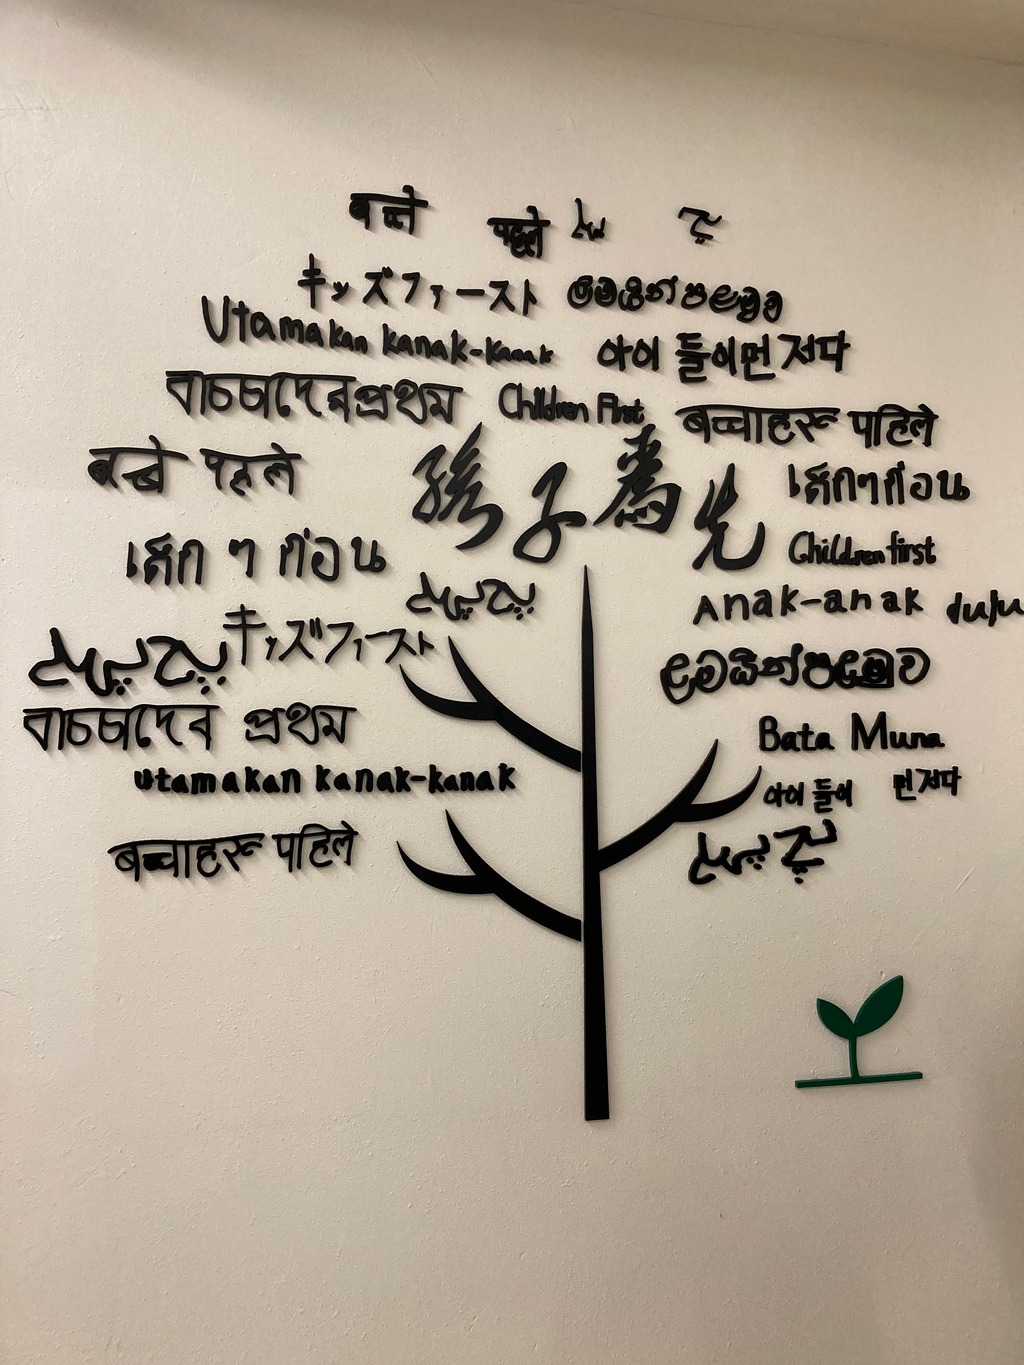 बच्चे पहले
キッズファースト
Utamakan kanak-kanak 아이 들이먼 저다
বাচ্চাদের প্রথম Children First बच्चाहरू पहिले
बच्चे पहले 孩子為先 เด็กๆก่อน
เด็ก ๆ ก่อน Children first
Anak-anak dulu
キッズファースト
বাচ্চাদের প্রথম Bata Muna
utamakan kanak-kanak 아이 들이 먼저다
बच्चाहरू पहिले